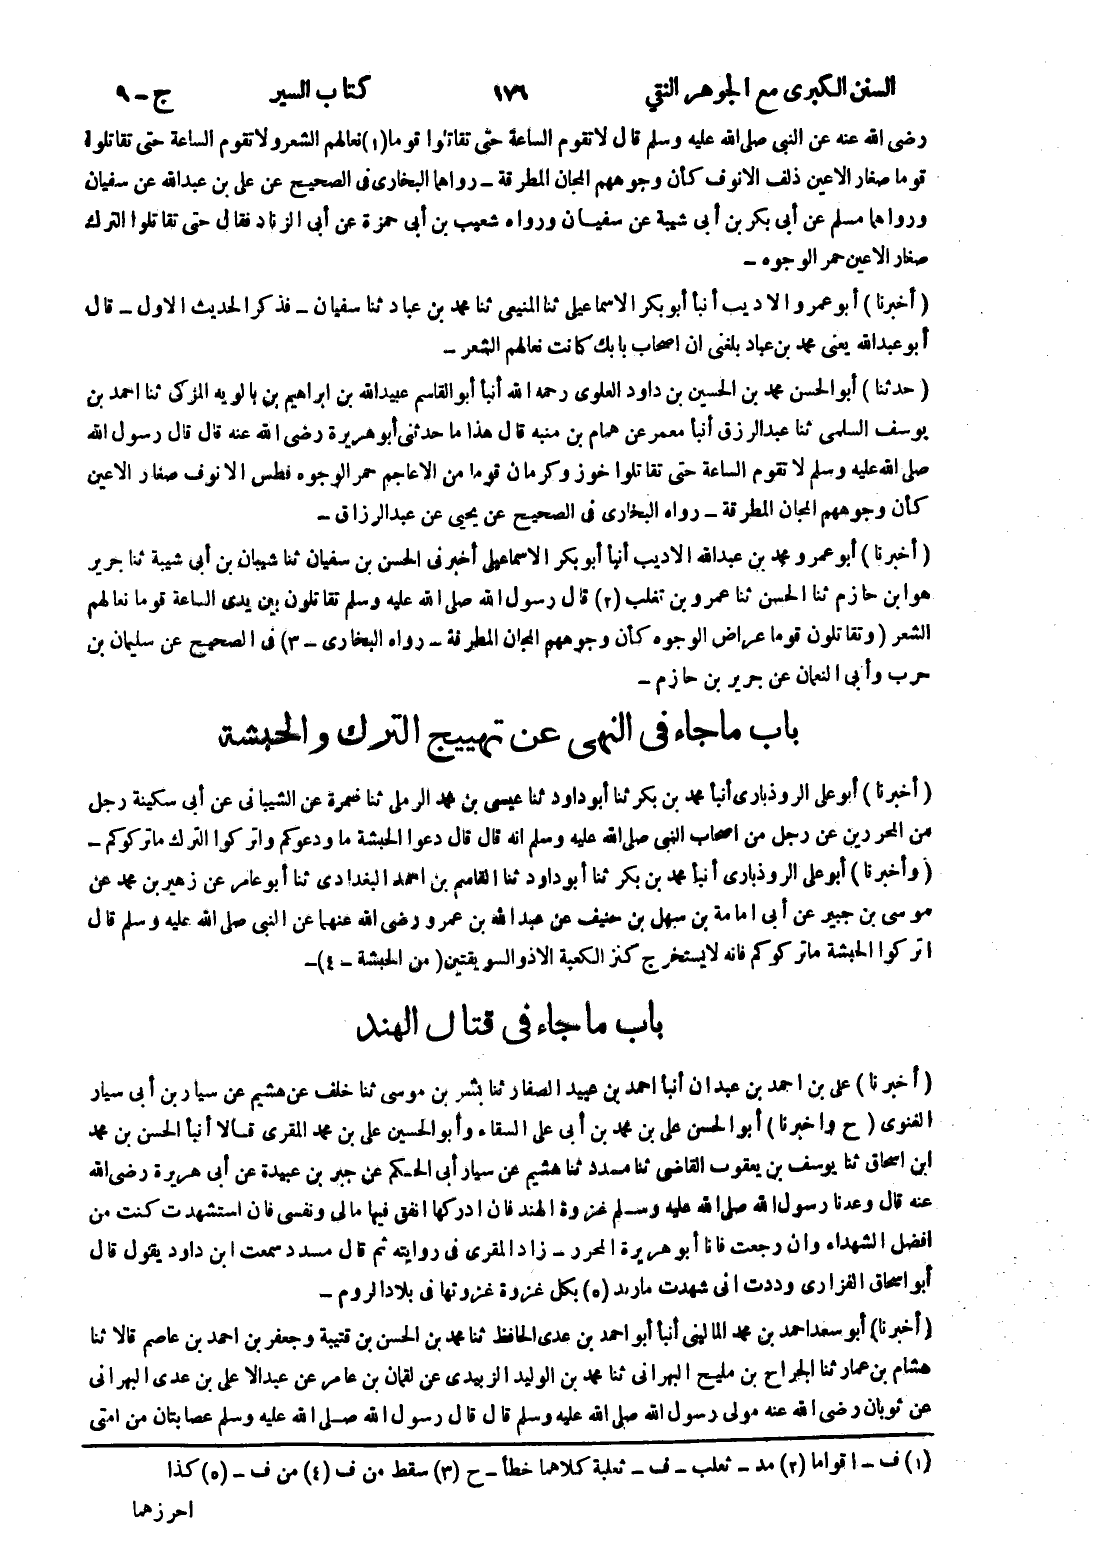 السنن الكبرى مع الجوهر النقي ١٧٦ كتاب السير ج - ٩
رضى الله عنه عن النبى صلى الله عليه وسلم قال لا تقوم الساعة حتى تقاتلوا قوما (١) نعالهم الشعر ولا تقوم الساعة حتى تقاتلوا
قوما صغار الاعين ذلف الانوف كأن وجوههم المجان المطرقة - رواهما البخارى فى الصحيح عن على بن عبدالله عن سفيان
ورواهما مسلم عن أبى بكر بن أبى شيبة عن سفيان ورواه شعيب بن أبى حمزة عن أبى الزناد فقال حتى تقاتلوا الترك
صغار الاعين حمر الوجوه -
( أخبرنا ) أبو عمرو الاديب أنبأ أبو بكر الاسماعيلى ثنا المنيعى ثنا محمد بن عباد ثنا سفيان - فذكر الحديث الاول - قال
أبو عبدالله يعنى محمد بن عباد بلغنى ان اصحاب بابك كانت نعالهم الشعر -
( حدثنا ) أبو الحسن محمد بن الحسين بن داود العلوى رحمه الله أنبأ أبو القاسم عبيدالله بن ابراهيم بن بالويه المزكى ثنا احمد بن
يوسف السلمى ثنا عبدالرزاق أنبأ معمر عن همام بن منبه قال هذا ما حدثنى أبو هريرة رضى الله عنه قال قال رسول الله
صلى الله عليه وسلم لا تقوم الساعة حتى تقاتلوا خوز وكرمان قوما من الاعاجم حمر الوجوه فطس الانوف صغار الاعين
كأن وجوههم المجان المطرقة - رواه البخارى فى الصحيح عن يحيى عن عبدالرزاق -
( أخبرنا ) أبو عمرو محمد بن عبدالله الاديب أنبأ أبو بكر الاسماعيلى أخبرنى الحسن بن سفيان ثنا شيبان بن أبى شيبة ثنا جرير
هو ابن حازم ثنا الحسن ثنا عمرو بن تغلب (٢) قال رسول الله صلى الله عليه وسلم تقاتلون بين يدى الساعة قوما نعالهم
الشعر ( وتقاتلون قوما عراض الوجوه كأن وجوههم المجان المطرقة - رواه البخارى - ٣) فى الصحيح عن سليمان بن
حرب وأبى النعمان عن جرير بن حازم -
باب ما جاء فى النهى عن تهييج الترك والحبشة
( أخبرنا ) أبو على الروذبارى أنبأ محمد بن بكر ثنا أبو داود ثنا عيسى بن محمد الرملى ثنا ضمرة عن الشيبانى عن أبى سكينة رجل
من المحررين عن رجل من اصحاب النبى صلى الله عليه وسلم انه قال قال دعوا الحبشة ما ودعوكم واتركوا الترك ما تركوكم -
( وأخبرنا ) أبو على الروذبارى أنبأ محمد بن بكر ثنا أبو داود ثنا القاسم بن احمد البغدادى ثنا أبو عامر عن زهير بن محمد عن
موسى بن جبير عن أبى امامة بن سهل بن حنيف عن عبدالله بن عمرو رضى الله عنهما عن النبى صلى الله عليه وسلم قال
اتركوا الحبشة ما تركوكم فانه لا يستخرج كنز الكعبة الا ذو السويقتين ( من الحبشة - ٤) -
باب ما جاء فى قتال الهند
( أخبرنا ) على بن احمد بن عبدان أنبأ احمد بن عبيد الصفار ثنا بشر بن موسى ثنا خلف عن هشيم عن سيار بن أبى سيار
الغنوى ( ح واخبرنا ) أبو الحسن على بن محمد بن أبى على السقاء وأبو الحسين على بن محمد المقرى قالا أنبأ الحسن بن محمد
ابن اسحاق ثنا يوسف بن يعقوب القاضى ثنا مسدد ثنا هشيم عن سيار أبى الحكم عن جبر بن عبيدة عن أبى هريرة رضى الله
عنه قال وعدنا رسول الله صلى الله عليه وسلم غزوة الهند فان ادركها انفق فيها مالى ونفسى فان استشهدت كنت من
افضل الشهداء وان رجعت فانا أبو هريرة المحرر - زاد المقرى فى روايته ثم قال مسدد سمعت ابن داود يقول قال
أبو اسحاق الفزارى وددت انى شهدت ماربد (٥) بكل غزوة غزوتها فى بلاد الروم -
( أخبرنا ) أبو سعد احمد بن محمد المالينى أنبأ أبو احمد بن عدى الحافظ ثنا محمد بن الحسن بن قتيبة وجعفر بن احمد بن عاصم قالا ثنا
هشام بن عمار ثنا الجراح بن مليح البهرانى ثنا محمد بن الوليد الزبيدى عن لقمان بن عامر عن عبدالاعلى بن عدى البهرانى
عن ثوبان رضى الله عنه مولى رسول الله صلى الله عليه وسلم قال قال رسول الله صلى الله عليه وسلم عصابتان من امتى
(١) ف - اقواما (٢) مد - ثعلب - ف - ثعلبة كلاهما خطأ - ح (٣) سقط من ف (٤) من ف - (٥) كذا
احرزهما